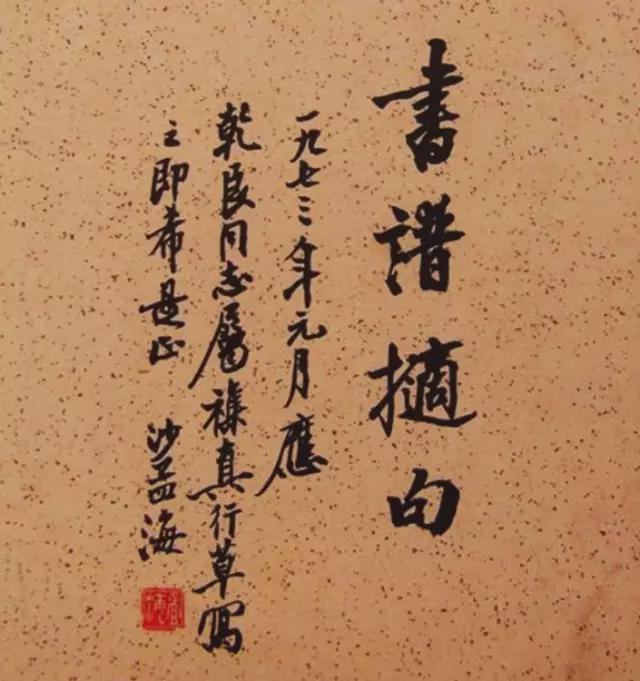 書譜摘句
一九七三年元月應
乾良同志屬襍真行草寫
之即希是正
沙孟海